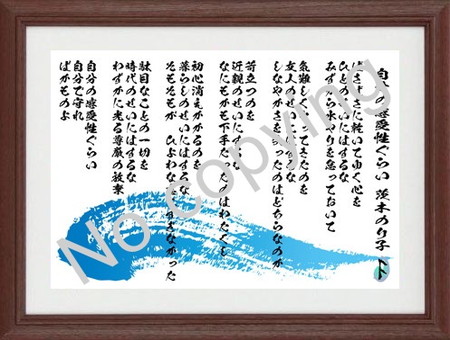 自分の感受性ぐらい 茨木のり子
ぱさぱさに乾いてゆく心を
ひとのせいにはするな
みずから水やりを怠っておいて
気難しくなってきたのを
友人のせいにはするな
しなやかさを失ったのはどちらなのか
苛立つのを
近親のせいにはするな
なにもかも下手だったのはわたくし
初心消えかかるのを
暮らしのせいにはするな
そもそもが ひよわな すぎなかった
駄目なことの一切を
時代のせいにはするな
わずかに光る尊厳の放棄
自分の感受性ぐらい
自分で守れ
ばかものよ
No copying